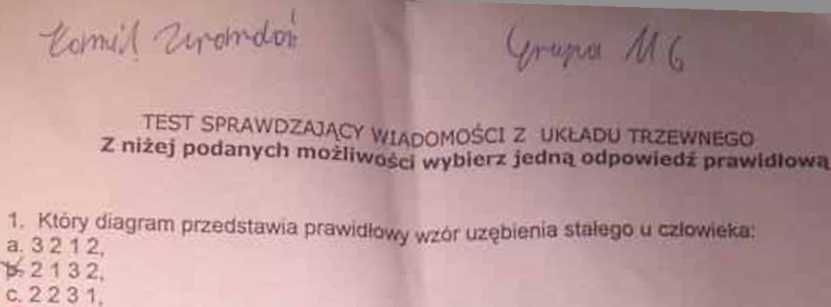 Kamil
Grupa M6
TEST SPRAWDZAJĄCY WIADOMOŚCI Z UKŁADU TRZEWNEGO
Z niżej podanych możliwości wybierz jedną odpowiedź prawidłową
1. Który diagram przedstawia prawidłowy wzór uzębienia stałego u człowieka:
a. 3 2 1 2,
b. 2 1 3 2,
c. 2 2 3 1,